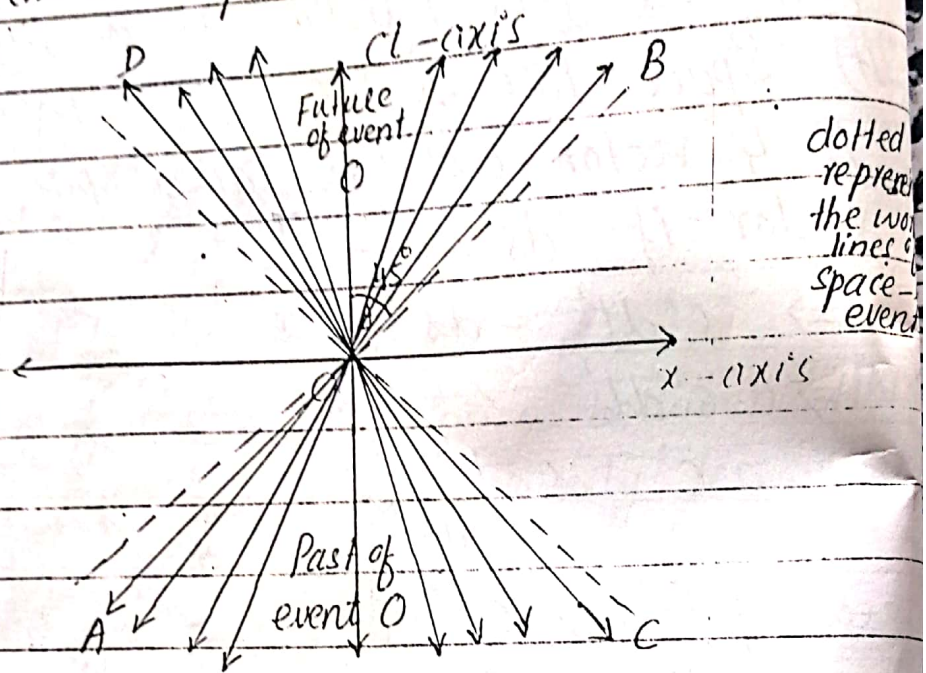 D
Ct-axis
B
Future
of event
O
45°
dotted
represe
the wor
lines o
space-
event
x-axis
O
Past of
event O
A
C